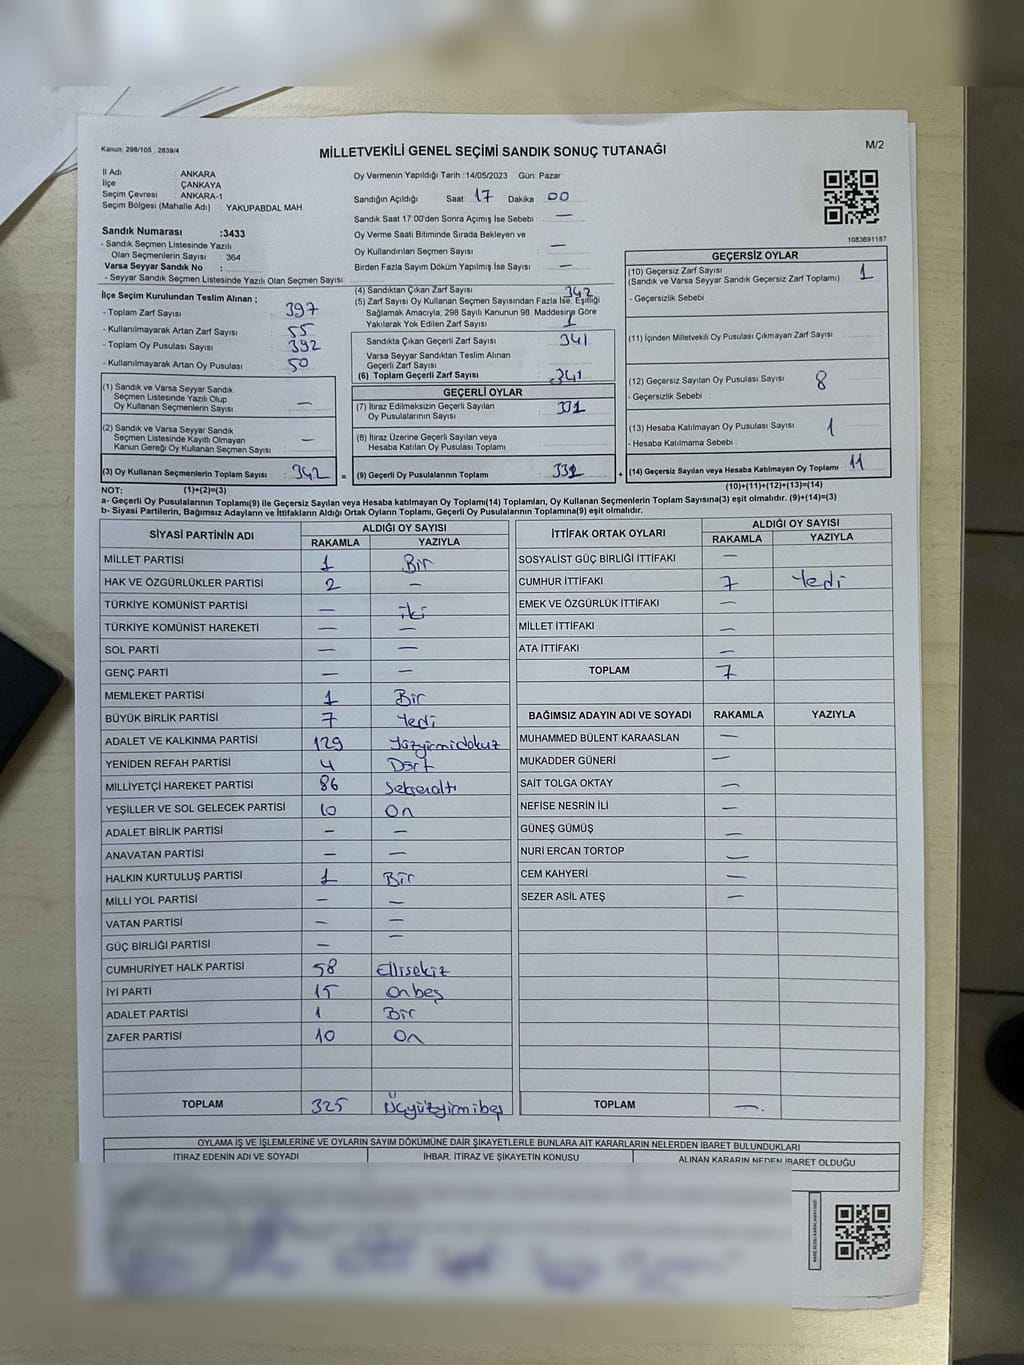 Kanun; 298/105 , 2839/4
MİLLETVEKİLİ GENEL SEÇİMİ SANDIK SONUÇ TUTANAĞI
M/2
İl Adı : ANKARA
İlçe : ÇANKAYA
Seçim Çevresi : ANKARA-1
Seçim Bölgesi (Mahalle Adı) : YAKUPABDAL MAH.
Sandık Numarası :3433
- Sandık Seçmen Listesinde Yazılı
Olan Seçmenlerin Sayısı : 364
Varsa Seyyar Sandık No :
- Seyyar Sandık Seçmen Listesinde Yazılı Olan Seçmen Sayısı:
Oy Vermenin Yapıldığı Tarih :14/05/2023 Gün: Pazar
Sandığın Açıldığı Saat 17 Dakika 00
Sandık Saat 17:00'den Sonra Açımış İse Sebebi : —
Oy Verme Saati Bitiminde Sırada Bekleyen ve
Oy Kullandırılan Seçmen Sayısı : —
Birden Fazla Sayım Döküm Yapılmış İse Sayısı : —
1083691187
İlçe Seçim Kurulundan Teslim Alınan ;
- Toplam Zarf Sayısı : 397
- Kullanılmayarak Artan Zarf Sayısı : 55
- Toplam Oy Pusulası Sayısı : 392
- Kullanılmayarak Artan Oy Pusulası : 50
(1) Sandık ve Varsa Seyyar Sandık
Seçmen Listesinde Yazılı Olup
Oy Kullanan Seçmenlerin Sayısı : —
(2) Sandık ve Varsa Seyyar Sandık
Seçmen Listesinde Kayıtlı Olmayan
Kanun Gereği Oy Kullanan Seçmen Sayısı : —
(3) Oy Kullanan Seçmenlerin Toplam Sayısı : 342 =
(1)+(2)=(3)
(4) Sandıktan Çıkan Zarf Sayısı : 342
(5) Zarf Sayısı Oy Kullanan Seçmen Sayısından Fazla İse, Eşitliği
Sağlamak Amacıyla; 298 Sayılı Kanunun 98. Maddesine Göre
Yakılarak Yok Edilen Zarf Sayısı : 1
Sandıkta Çıkan Geçerli Zarf Sayısı : 341
Varsa Seyyar Sandıktan Teslim Alınan
Geçerli Zarf Sayısı :
(6) Toplam Geçerli Zarf Sayısı : 341
GEÇERLİ OYLAR
(7) İtiraz Edilmeksizin Geçerli Sayılan
Oy Pusulalarının Sayısı : 331
(8) İtiraz Üzerine Geçerli Sayılan veya
Hesaba Katılan Oy Pusulası Toplamı :
(9) Geçerli Oy Pusulalarının Toplamı : +
GEÇERSİZ OYLAR
(10) Geçersiz Zarf Sayısı : 1
(Sandık ve Varsa Seyyar Sandık Geçersiz Zarf Toplamı)
- Geçersizlik Sebebi :
(11) İçinden Milletvekili Oy Pusulası Çıkmayan Zarf Sayısı :
(12) Geçersiz Sayılan Oy Pusulası Sayısı : 8
- Geçersizlik Sebebi :
(13) Hesaba Katılmayan Oy Pusulası Sayısı : 1
- Hesaba Katılmama Sebebi :
(14) Geçersiz Sayılan veya Hesaba Katılmayan Oy Toplamı : 11
(10)+(11)+(12)+(13)=(14)
NOT:
a- Geçerli Oy Pusulalarının Toplamı(9) ile Geçersiz Sayılan veya Hesaba katılmayan Oy Toplamı(14) Toplamları, Oy Kullanan Seçmenlerin Toplam Sayısına(3) eşit olmalıdır. (9)+(14)=(3)
b- Siyasi Partilerin, Bağımsız Adayların ve İttifakların Aldığı Ortak Oyların Toplamı, Geçerli Oy Pusulalarının Toplamına(9) eşit olmalıdır.
SİYASİ PARTİNİN ADI ALDIĞI OY SAYISI
RAKAMLA YAZIYLA
MİLLET PARTİSİ 1 Bir
HAK VE ÖZGÜRLÜKLER PARTİSİ 2 —
TÜRKİYE KOMÜNİST PARTİSİ — iki
TÜRKİYE KOMÜNİST HAREKETİ — —
SOL PARTİ — —
GENÇ PARTİ — —
MEMLEKET PARTİSİ 1 Bir
BÜYÜK BİRLİK PARTİSİ 7 Yedi
ADALET VE KALKINMA PARTİSİ 129 Yüzyirmidokuz
YENİDEN REFAH PARTİSİ 4 Dört
MİLLİYETÇİ HAREKET PARTİSİ 86 Seksenaltı
YEŞİLLER VE SOL GELECEK PARTİSİ 10 On
ADALET BİRLİK PARTİSİ — —
ANAVATAN PARTİSİ — —
HALKIN KURTULUŞ PARTİSİ 1 Bir
MİLLİ YOL PARTİSİ — —
VATAN PARTİSİ — —
GÜÇ BİRLİĞİ PARTİSİ — —
CUMHURİYET HALK PARTİSİ 58 Ellisekiz
İYİ PARTİ 15 Onbeş
ADALET PARTİSİ 1 Bir
ZAFER PARTİSİ 10 On
TOPLAM 325 Üçyüzyirmibeş
İTTİFAK ORTAK OYLARI ALDIĞI OY SAYISI
RAKAMLA YAZIYLA
SOSYALİST GÜÇ BİRLİĞİ İTTİFAKI —
CUMHUR İTTİFAKI 7 Yedi
EMEK VE ÖZGÜRLÜK İTTİFAKI —
MİLLET İTTİFAKI —
ATA İTTİFAKI —
TOPLAM 7
BAĞIMSIZ ADAYIN ADI VE SOYADI RAKAMLA YAZIYLA
MUHAMMED BÜLENT KARAASLAN —
MUKADDER GÜNERİ —
SAİT TOLGA OKTAY —
NEFİSE NESRİN İLİ —
GÜNEŞ GÜMÜŞ —
NURİ ERCAN TORTOP —
CEM KAHYERİ —
SEZER ASİL ATEŞ —
TOPLAM —.
OYLAMA İŞ VE İŞLEMLERİNE VE OYLARIN SAYIM DÖKÜMÜNE DAİR ŞİKAYETLERLE BUNLARA AİT KARARLARIN NELERDEN İBARET BULUNDUKLARI
İTİRAZ EDENİN ADI VE SOYADI İHBAR, İTİRAZ VE ŞİKAYETİN KONUSU ALINAN KARARIN NEDEN İBARET OLDUĞU